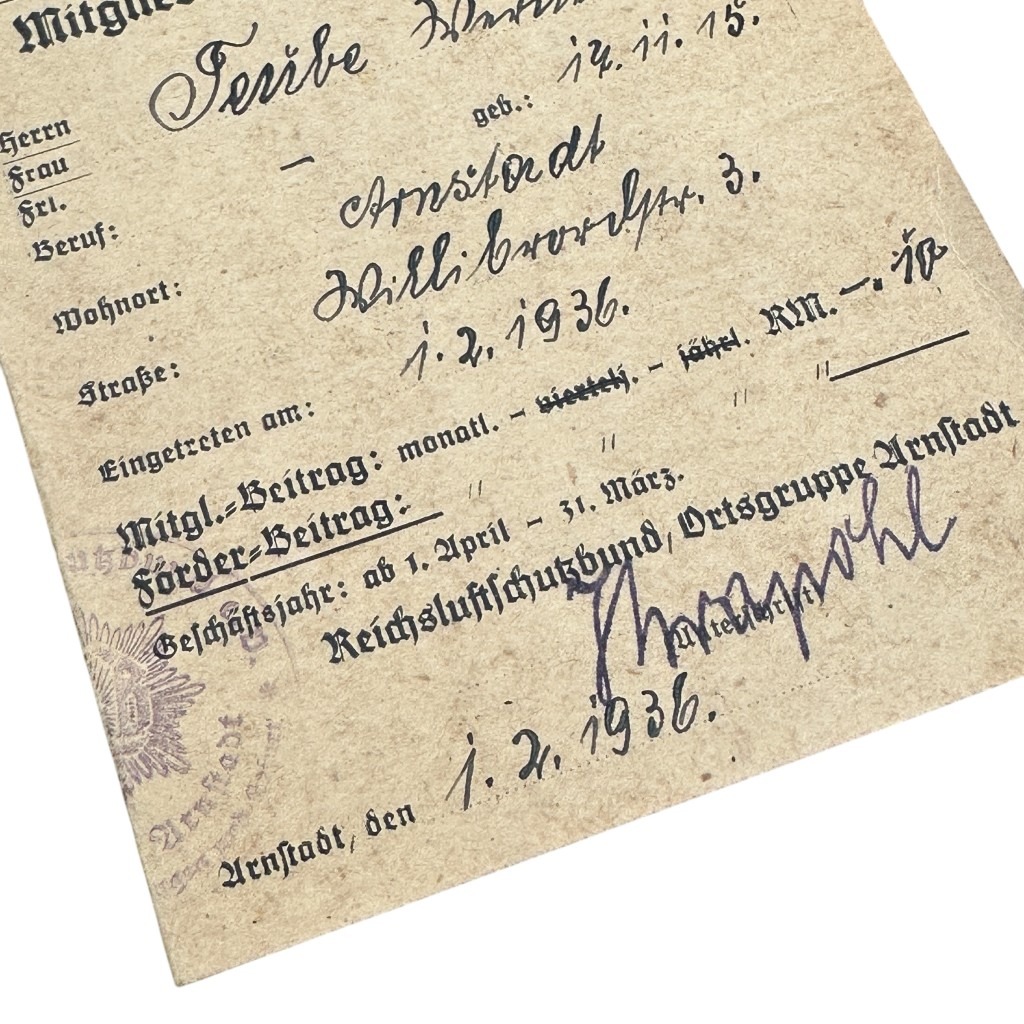 Mitglied
Teube
geb.: 14.11.15.
Herrn
Frau
Frl.
Beruf: –
Wohnort: Arnstadt
Straße: Willibrordstr. 3.
Eingetreten am: 1.2.1936.
Mitgl.=Beitrag: monatl. – viertelj. – jährl. RM. –.10
Förder=Beitrag: " " " "
Geschäftsjahr: ab 1. April – 31. März.
Reichsluftschutzbund, Ortsgruppe Arnstadt
Unterschrift
Arnstadt, den 1.2.1936.
Arnstadt